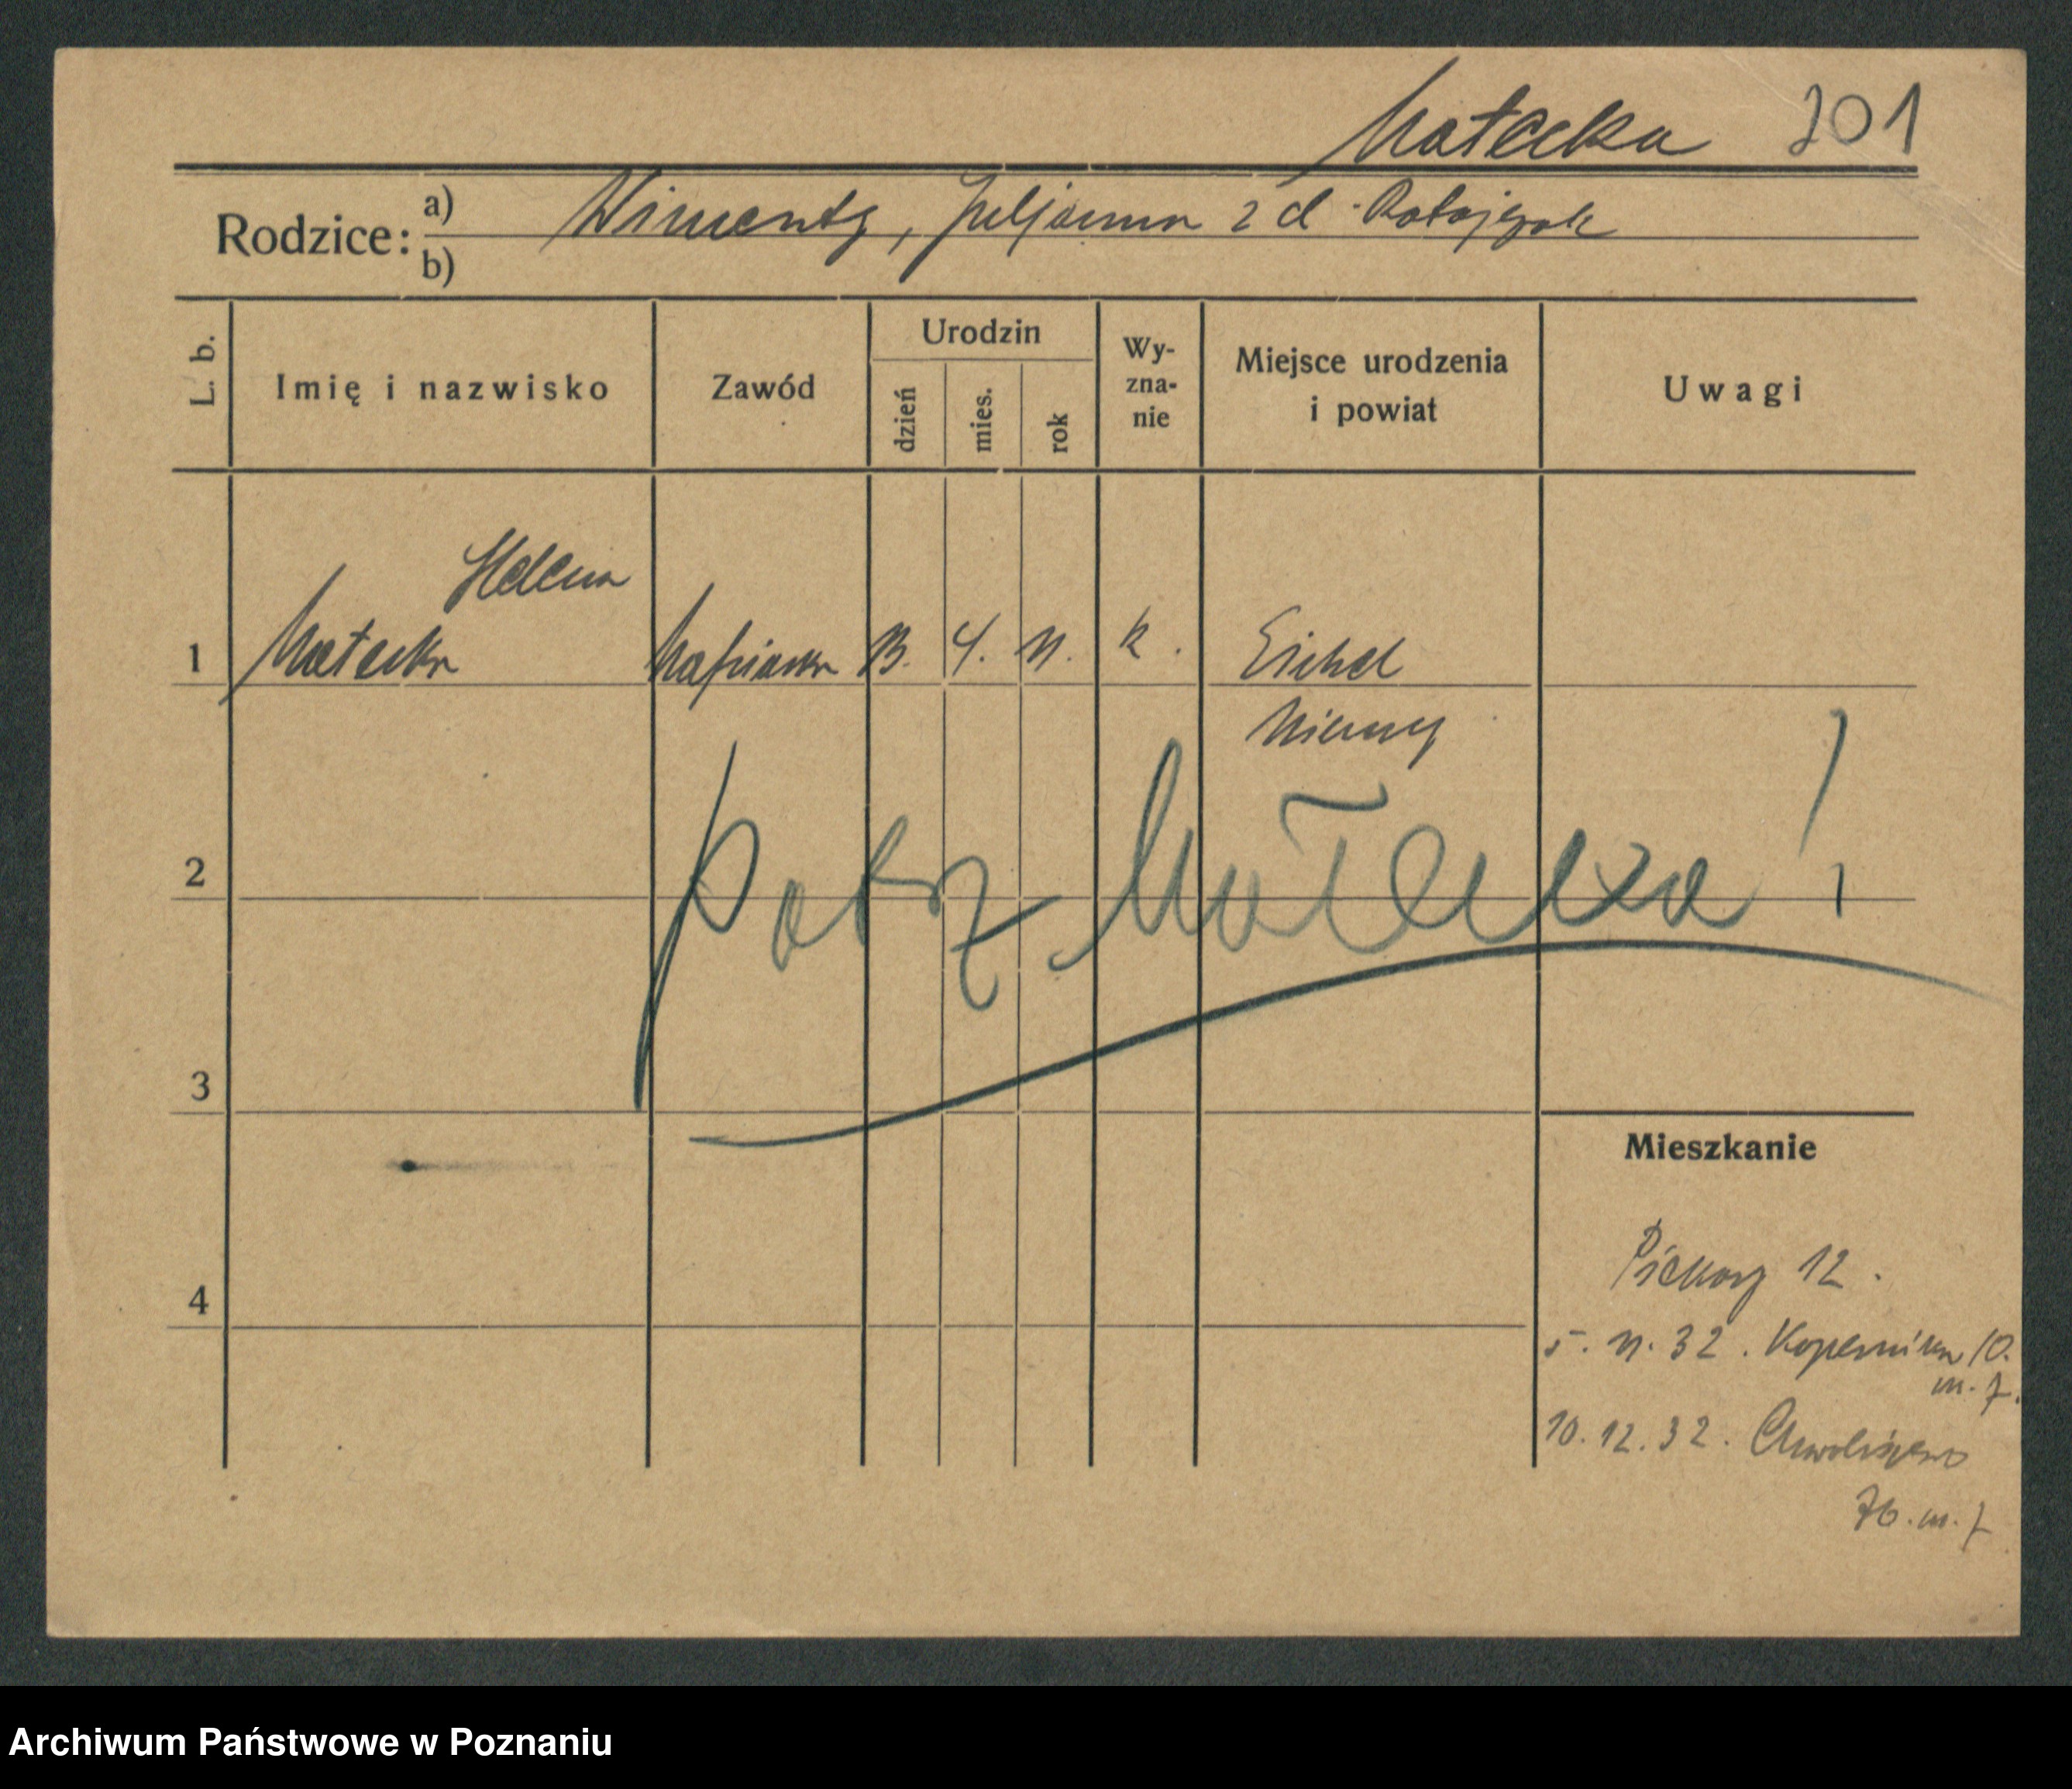 Małecka 201
Rodzice: a) Wincenty, Juljanna z d. Ratajczak
b)
L. b.
Imię i nazwisko
Zawód
Urodzin
dzień
mies.
rok
Wy-
zna-
nie
Miejsce urodzenia
i powiat
Uwagi
Helena
1 Małecka 13. 4. 11. k. Eichel
Niemcy
2 patrz Małecka!
3
Mieszkanie
4
Piekary 12.
5. 11. 32. Kopernika 10.
m. 7.
10. 12. 32. Chwaliszewo
76. m. 7
Archiwum Państwowe w Poznaniu